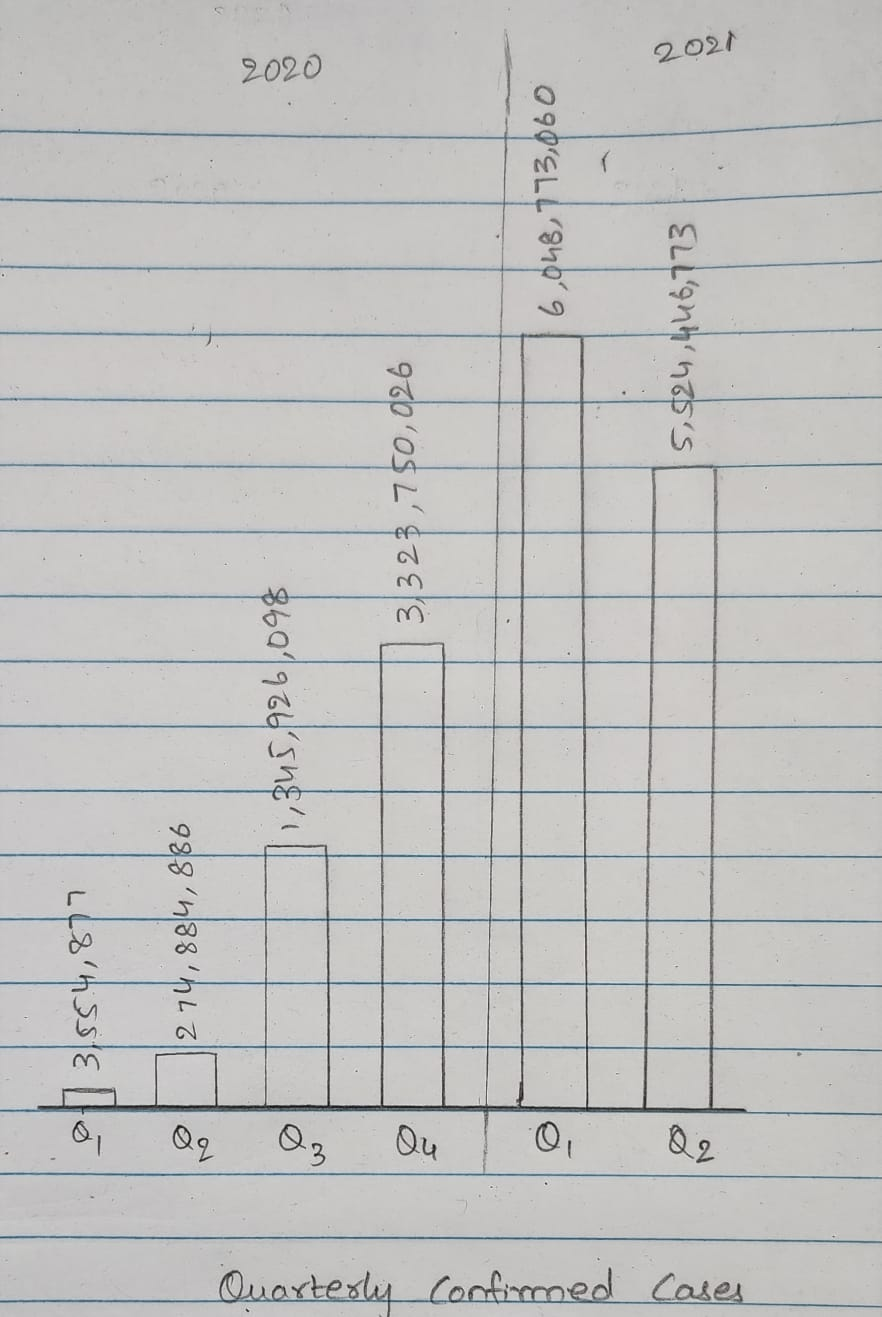 2020
2021
3,554,877
274,884,886
1,345,926,098
3,323,750,026
6,048,773,060
5,524,446,773
Q1
Q2
Q3
Q4
Q1
Q2
Quarterly Confirmed Cases